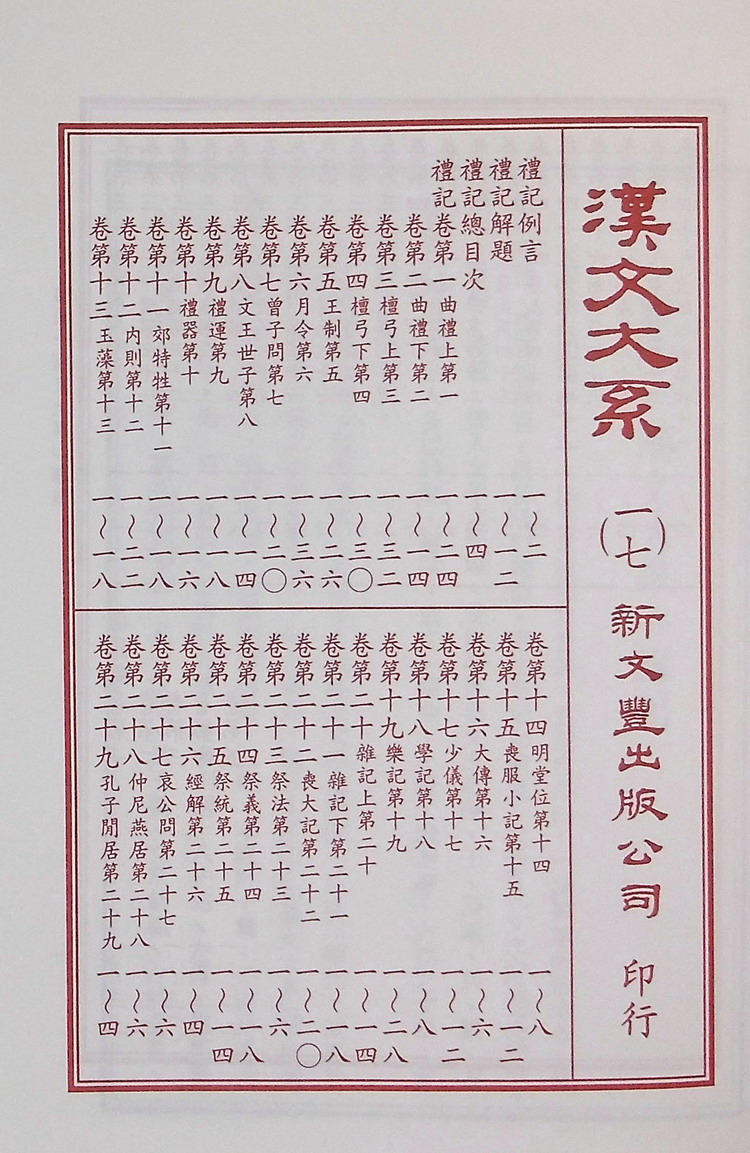 漢文大系 (一七) 新文豐出版公司 印行
禮記例言 一～二
禮記解題 一～一二
禮記總目次 一～四
禮記卷第一 曲禮上第一 一～二四
卷第二 曲禮下第二 一～一四
卷第三 檀弓上第三 一～三二
卷第四 檀弓下第四 一～三〇
卷第五 王制第五 一～二六
卷第六 月令第六 一～三六
卷第七 曾子問第七 一～二〇
卷第八 文王世子第八 一～一四
卷第九 禮運第九 一～一八
卷第十 禮器第十 一～一六
卷第十一 郊特牲第十一 一～一八
卷第十二 內則第十二 一～二二
卷第十三 玉藻第十三 一～一八
卷第十四 明堂位第十四 一～八
卷第十五 喪服小記第十五 一～一二
卷第十六 大傳第十六 一～六
卷第十七 少儀第十七 一～一二
卷第十八 學記第十八 一～八
卷第十九 樂記第十九 一～二八
卷第二十 雜記上第二十 一～一四
卷第二十一 雜記下第二十一 一～一八
卷第二十二 喪大記第二十二 一～二〇
卷第二十三 祭法第二十三 一～六
卷第二十四 祭義第二十四 一～一八
卷第二十五 祭統第二十五 一～一四
卷第二十六 經解第二十六 一～四
卷第二十七 哀公問第二十七 一～六
卷第二十八 仲尼燕居第二十八 一～六
卷第二十九 孔子閒居第二十九 一～四